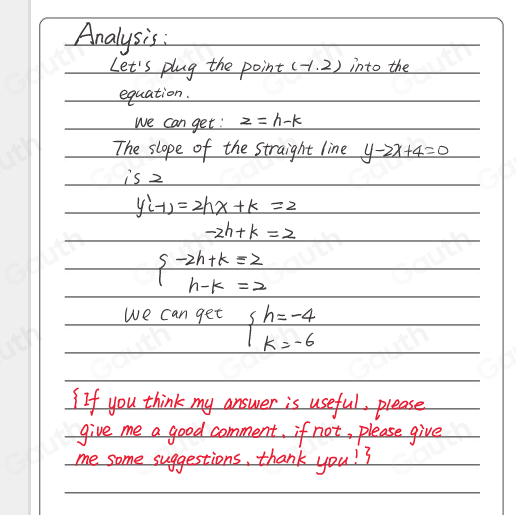 Analysis:
Let's plug the point (-1.2) into the
equation.
we can get: 2=h-k
The slope of the straight line y-2x+4=0
is 2
y'(-1)=2hx+k =2
-2h+k =2
{ -2h+k=2
h-k =2
We can get { h=-4
k=-6
{If you think my answer is useful, please
give me a good comment, if not, please give
me some suggestions, thank you!}